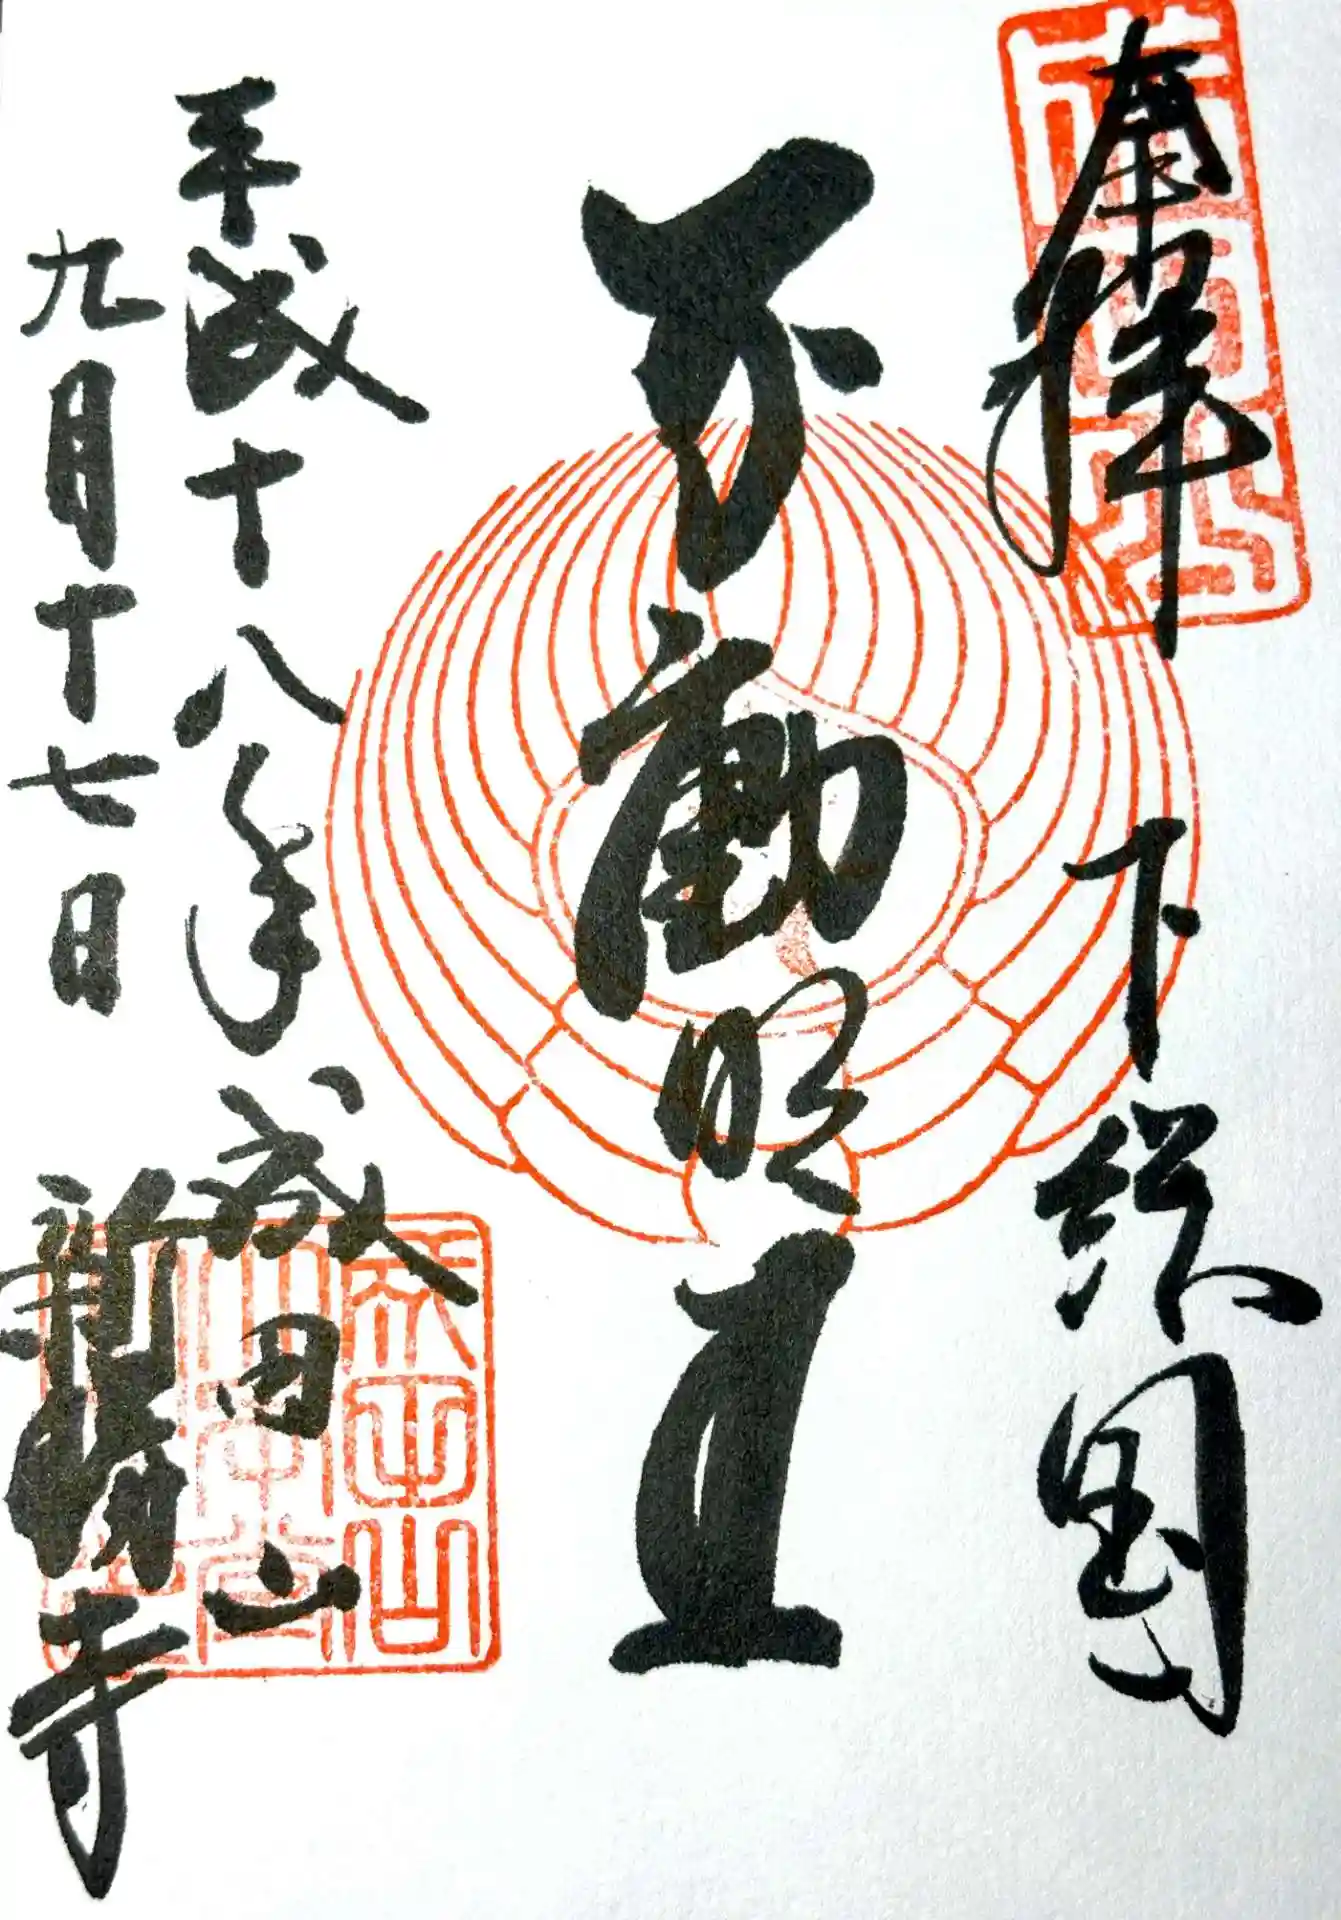 奉拝
下総国
不動明王
平成十八年
九月十七日
成田山
新勝寺